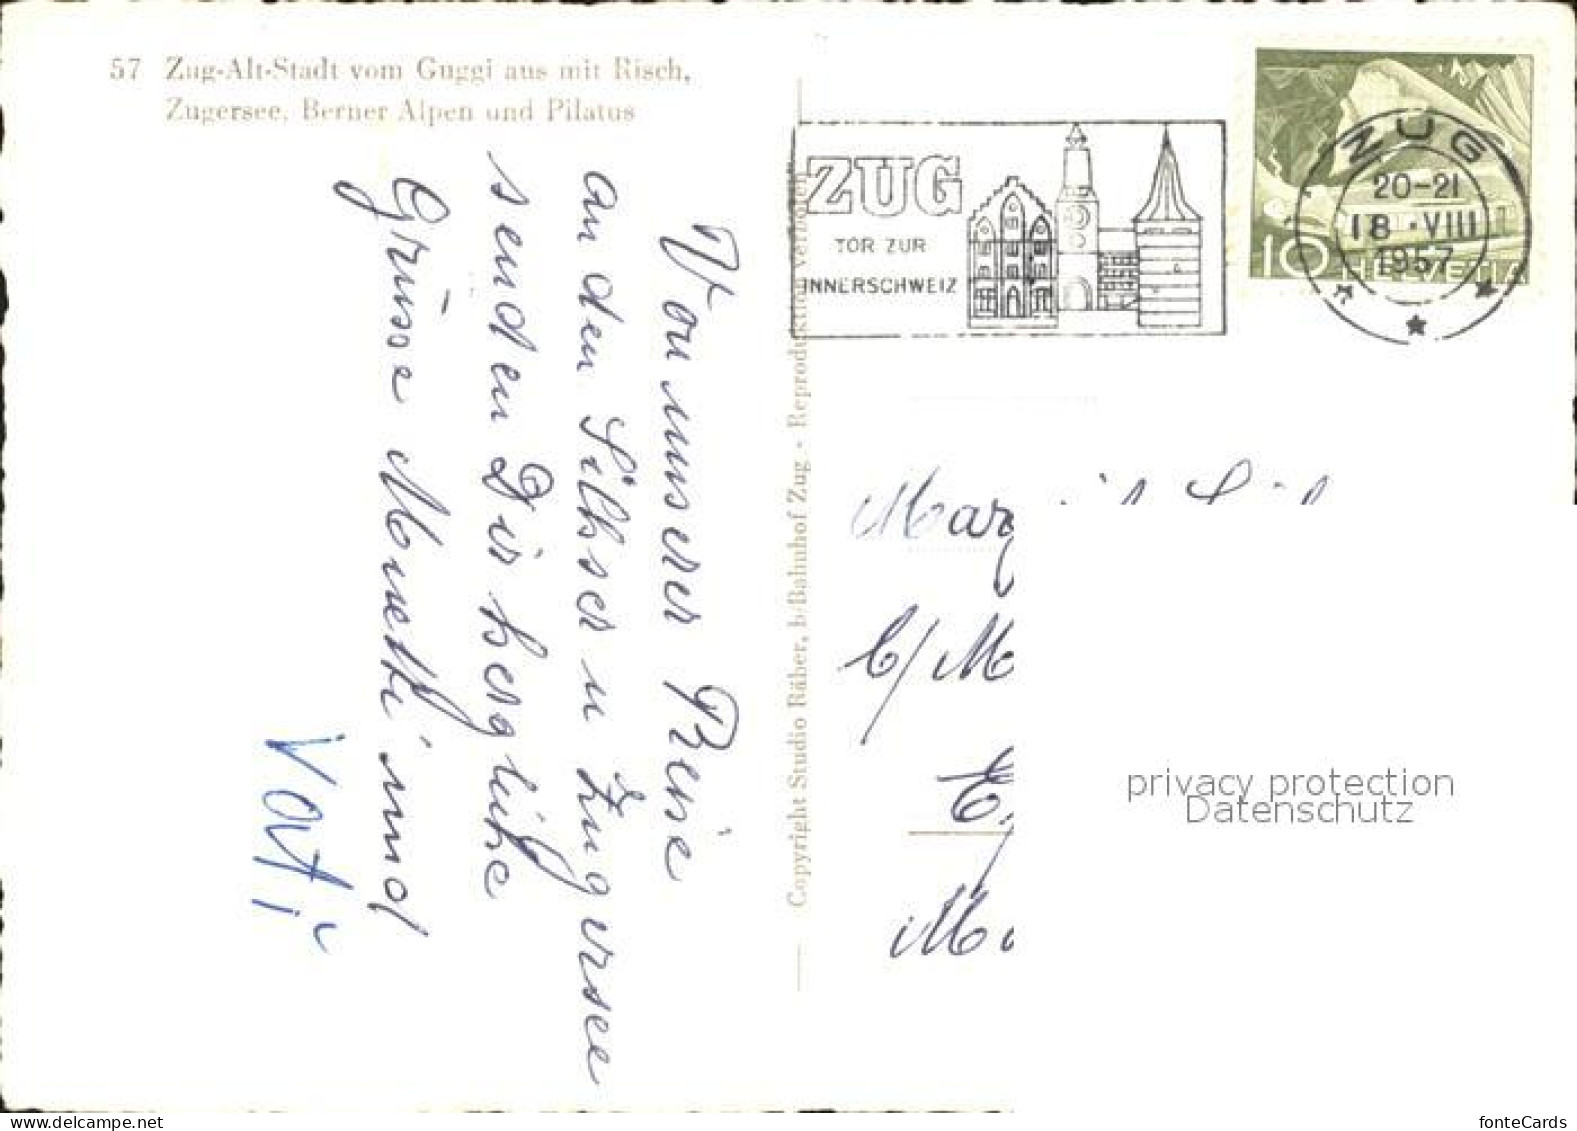 57 Zug-Alt-Stadt vom Guggi aus mit Risch,
Zugersee, Berner Alpen und Pilatus
Von unserer Reise
an den Silhser u Zugersee
senden Dir herzliche
Grüsse Muetti und
Vati
Copyright Studio Räber, b/Bahnhof Zug - Reproduktion verboten
ZUG
TOR ZUR
INNERSCHWEIZ
ZUG
20-21
18.VIII
1957
10 HELVETIA
C/
privacy protection
Datenschutz
delcampe.net
fonteCards